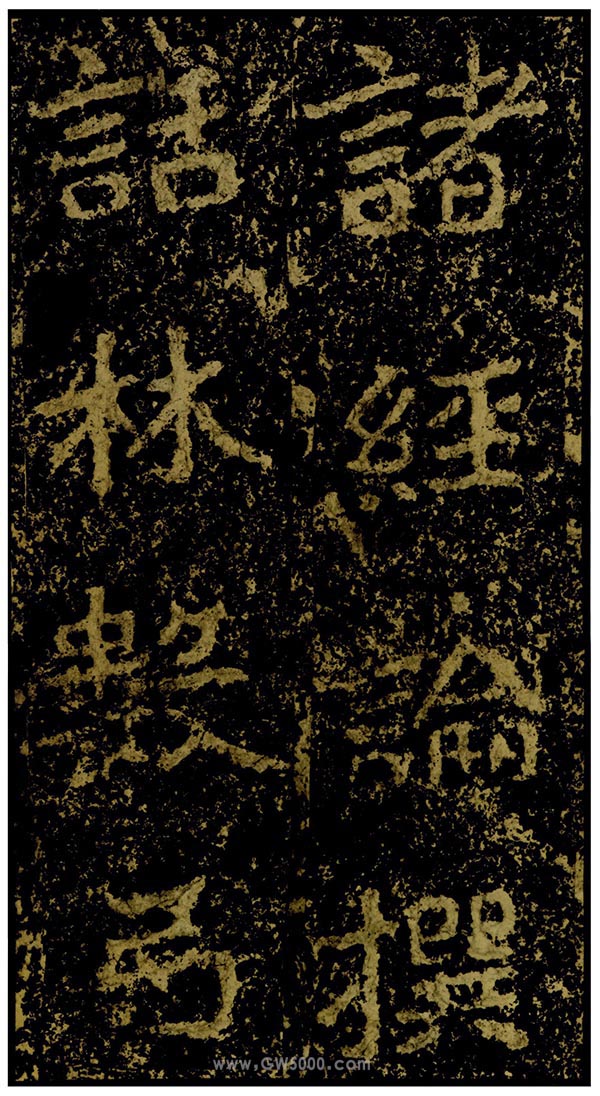 諸經論撰
話林數卷
www.GW5000.com